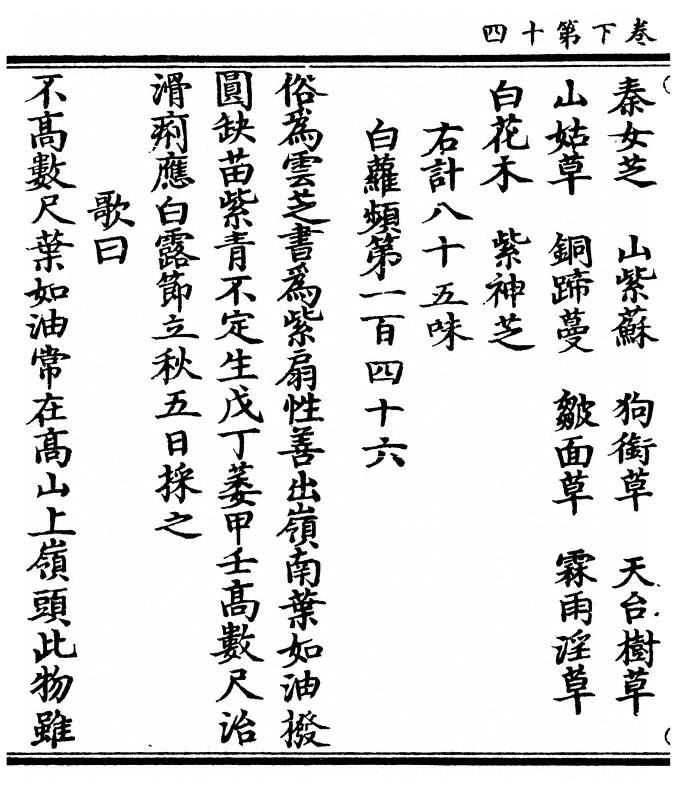 卷下第十四
秦女芝　山紫蘇　狗銜草　天台樹草
山姑草　銅蹄蔓　皺面草　霖雨淫草
白花木　紫神芝
右計八十五味
白蘿頻第一百四十六
俗為雲芝書為紫扇性善出嶺南葉如油撥
圓缺苗紫青不定生戊丁萎甲壬高數尺治
滑痢應白露節立秋五日採之
歌曰
不高數尺葉如油常在高山上嶺頭此物雖